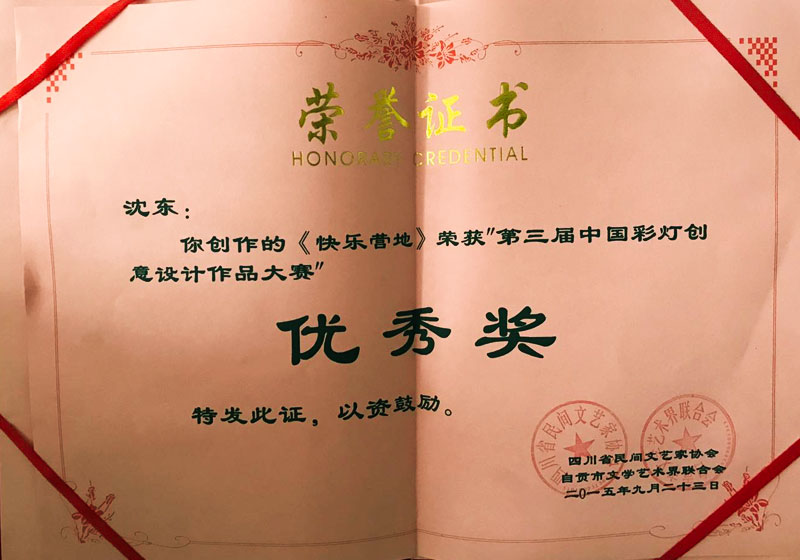 荣誉证书
HONORARY CREDENTIAL
沈东：
你创作的《快乐营地》荣获"第三届中国彩灯创
意设计作品大赛"
优秀奖
特发此证，以资鼓励。
四川省民间文艺家协
艺术界联合会
四川省民间文艺家协会
自贡市文学艺术界联合会
二〇一五年九月二十三日